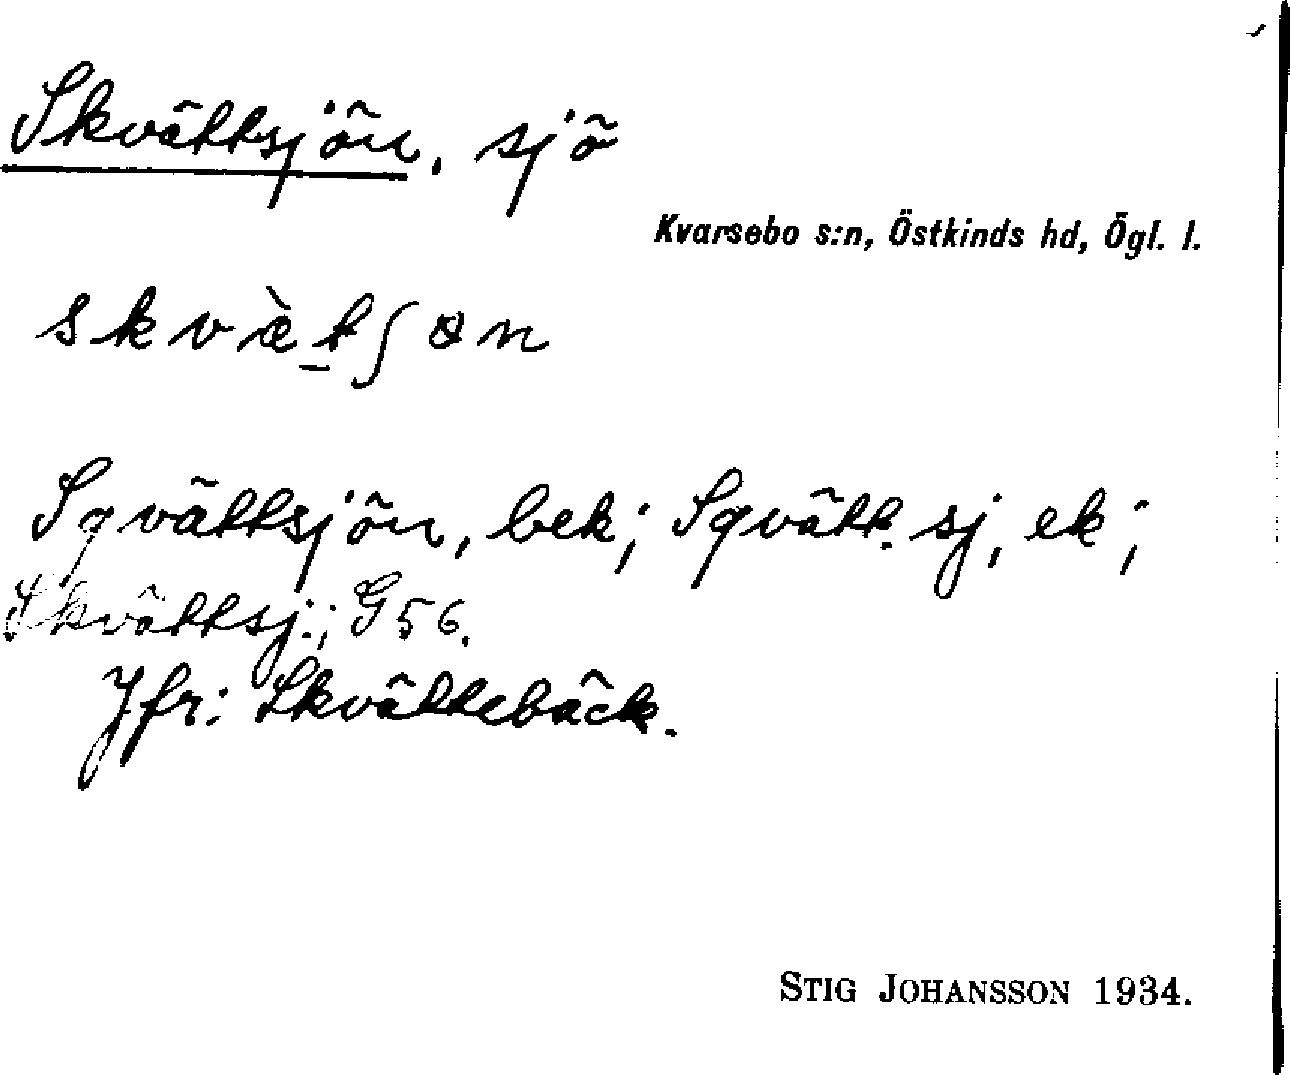 Skvättsjön, sjö
Kvarsebo s:n, Östkinds hd, Ögl. l.
skvæ̀t̠ʃɵn
Sqvättsjön, bek; Sqvätt. sj, ek;
Skvättsj:; G56.
Jfr: Skvättebäck.
STIG JOHANSSON 1934.